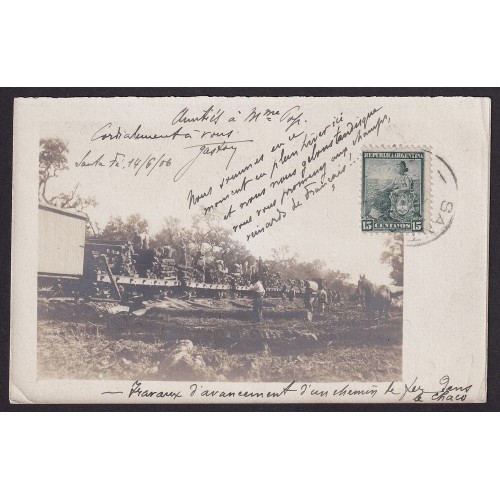 Amitiés à Mme Pop.
Cordialement à vous
Gaston
Santa Fe, 14/6/06
Nous sommes en ce
moment en plein hiver ici
et nous nous gelons tandisque
vous vous promenez aux champs,
veinards de français!!
REPUBLICA ARGENTINA
15 CENTAVOS 15
SANT
Travaux d'avancement d'un chemin de fer dans
le Chaco